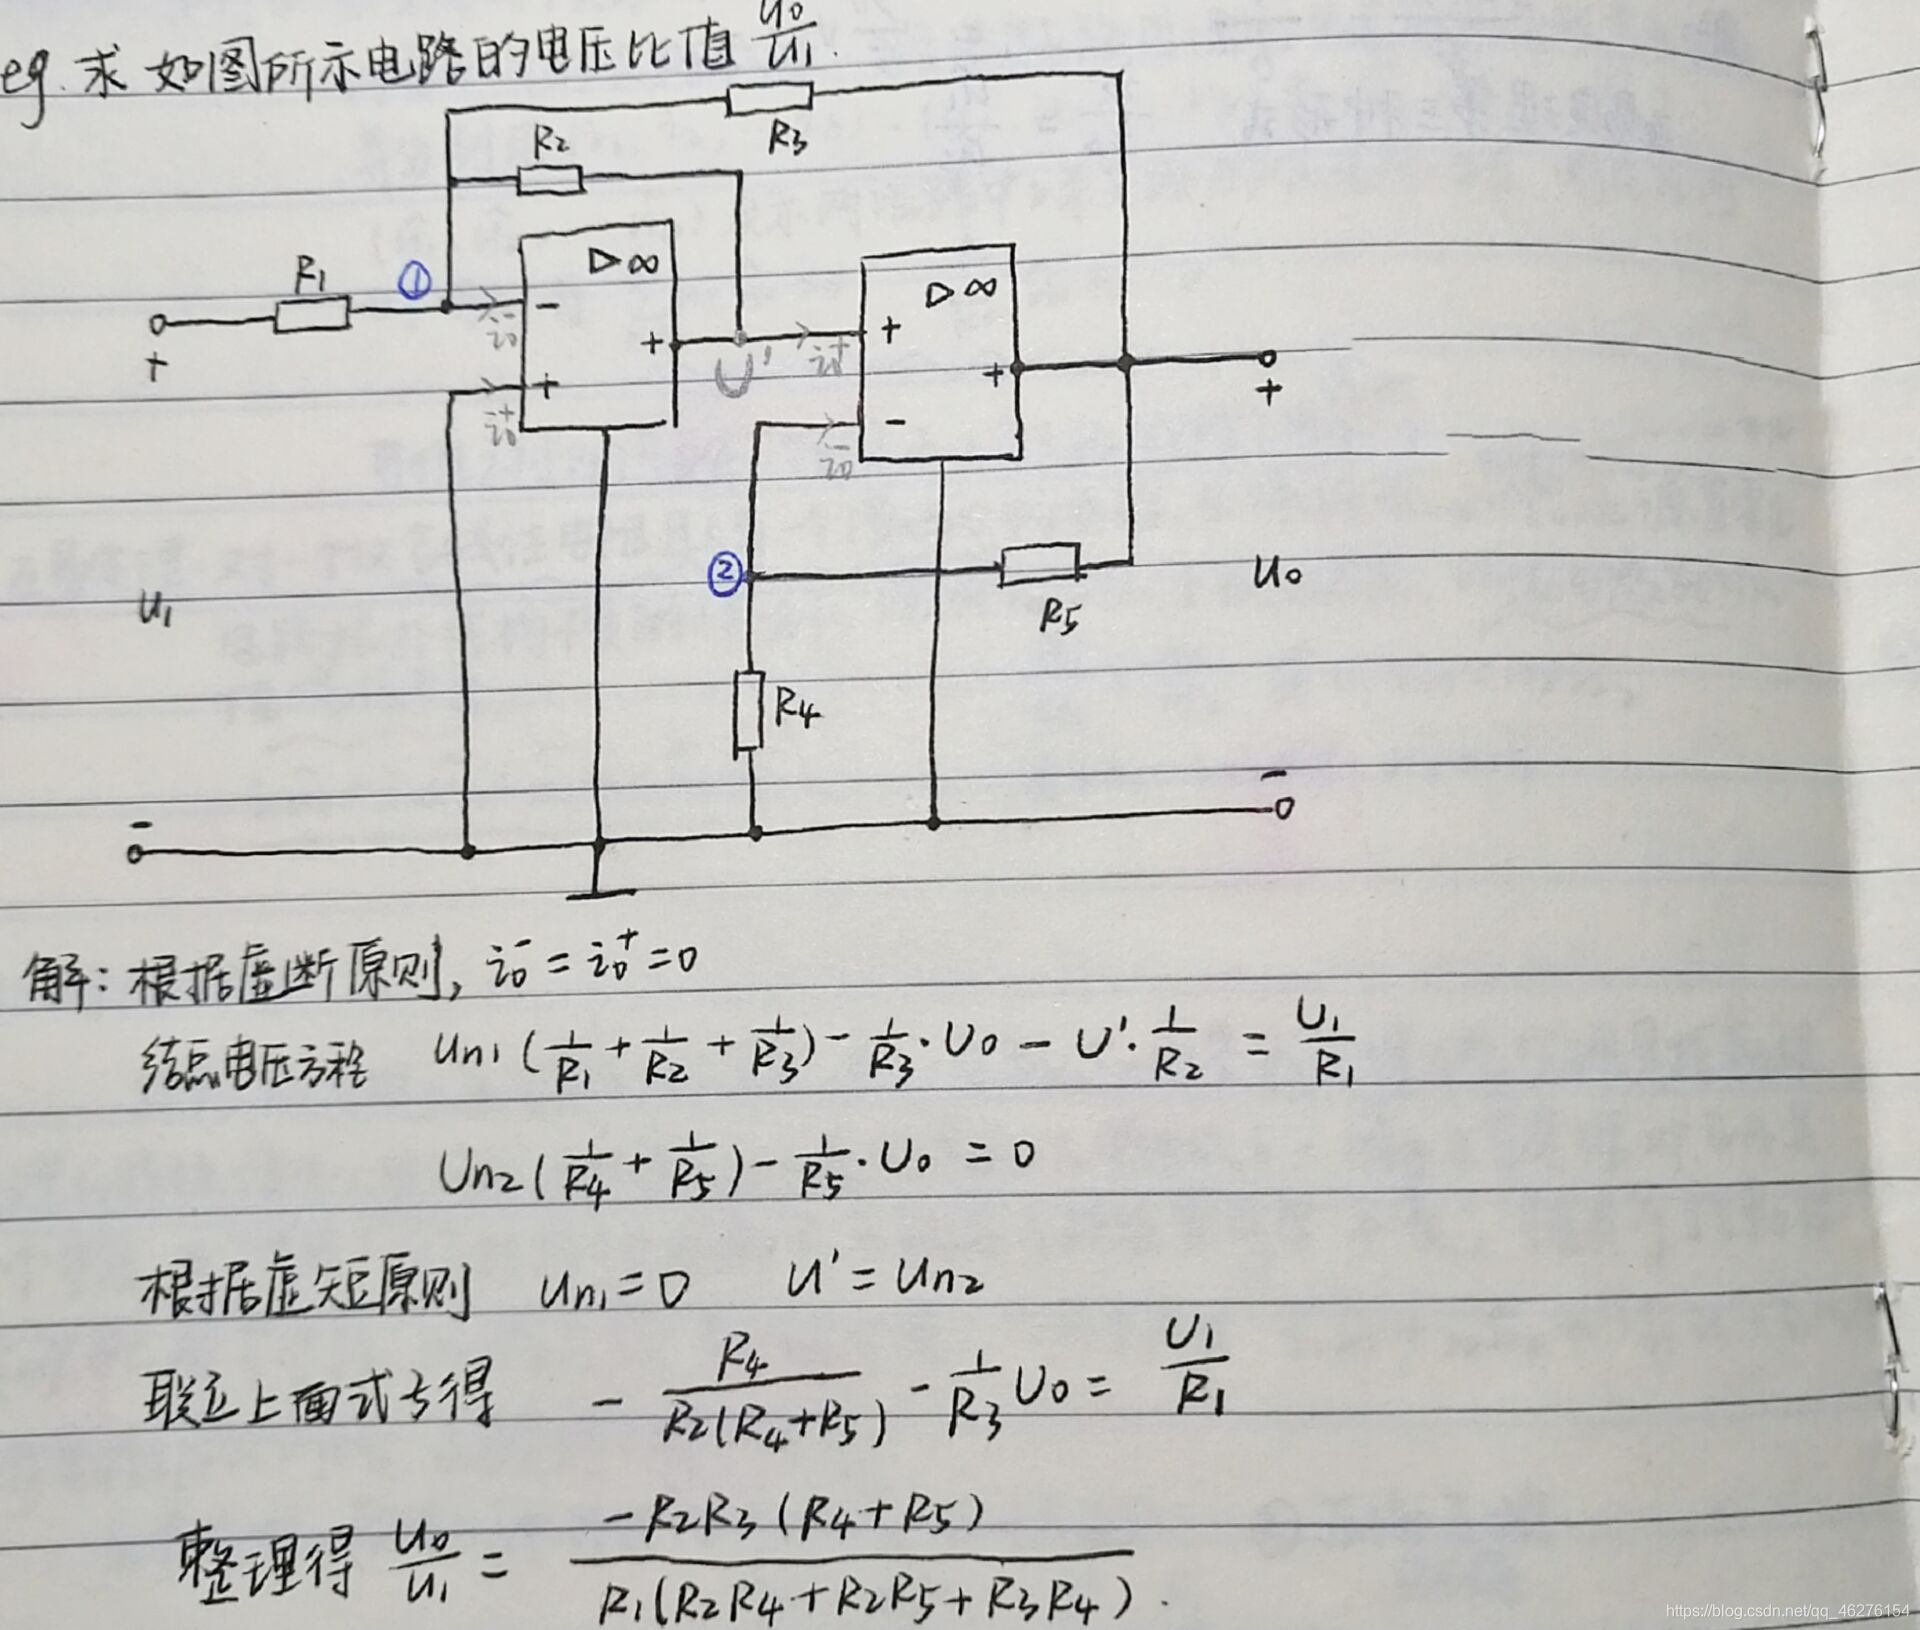 eg. 求如图所示电路的电压比值 u₀/u₁.
R₃
R₂
R₁ ① ▷∞
- ▷∞
i₀⁻ + +
+ U' i₀⁺
+ + +
i₀⁺ -
i₀⁻
②
u₁ R₅ u₀
R₄
- -
解：根据虚断原则, i₀⁻ = i₀⁺ = 0
结点电压方程 Un₁(1/R₁ + 1/R₂ + 1/R₃) - 1/R₃·U₀ - U'·1/R₂ = U₁/R₁
Un₂(1/R₄ + 1/R₅) - 1/R₅·U₀ = 0
根据虚短原则 Un₁=0 U'=Un₂
联立上面式子得 - R₄/R₂(R₄+R₅) - 1/R₃ U₀ = U₁/R₁
整理得 u₀/u₁ = -R₂R₃(R₄+R₅)/R₁(R₂R₄+R₂R₅+R₃R₄).
https://blog.csdn.net/qq_46276154